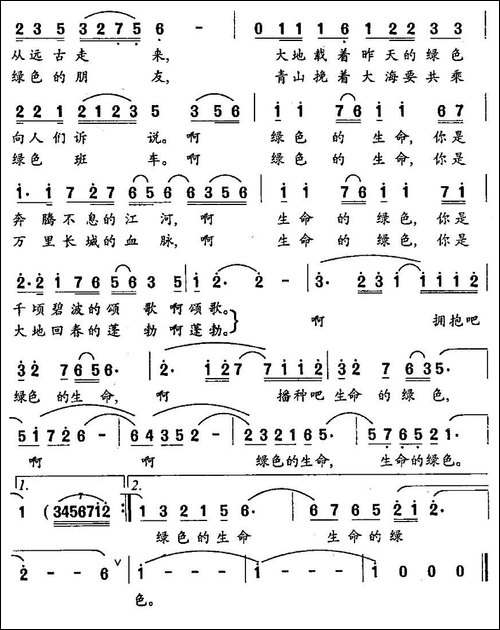 2 3 5 3 2 7 5 6 - | 0 1 1 1 6 1 2 2 3 3
从远古走 来, 大地载着昨天的绿色
绿色的朋 友, 青山挽着大海要共乘
2 2 1 2 1 2 3 5 3 5 6 | i i 7 6 i i 6 7
向人们诉 说。啊 绿色的生命,你是
绿色 班 车。啊 绿色的生命,你是
i· i 7 2 7 6 5 6 6 3 5 6 | i i 7 6 i i 7 i
奔腾不息的江河,啊 生命的绿色,你是
万里长城的血脉,啊 生命的绿色,你是
2· 2 i 7 6 5 6 3 5 | i 2· 2 - | 3· 3 i i i i 2
千顷碧波的颂 歌啊颂歌。 啊 拥抱吧
大地回春的蓬 勃啊蓬勃。
3 2 7 6 5 6· 2· i 2 7 7 i i 2 | 3 2 7 6 3 5·
绿色的生命, 啊 播种吧生命的绿色,
5 i 7 2 6 - | 6 4 3 5 2 - | 2 3 2 1 6 5· | 5 7 6 5 2 1·
啊 啊 绿色的生命, 生命的绿色。
1. 2.
1 (3 4 5 6 7 1 2 :| 1 3 2 1 5 6· | 6 7 6 5 2 i 2·
绿色的生命 生命的绿
2 - - 6 ∨ | i - - - | i - - - | 1 0 0 0 ‖
色。